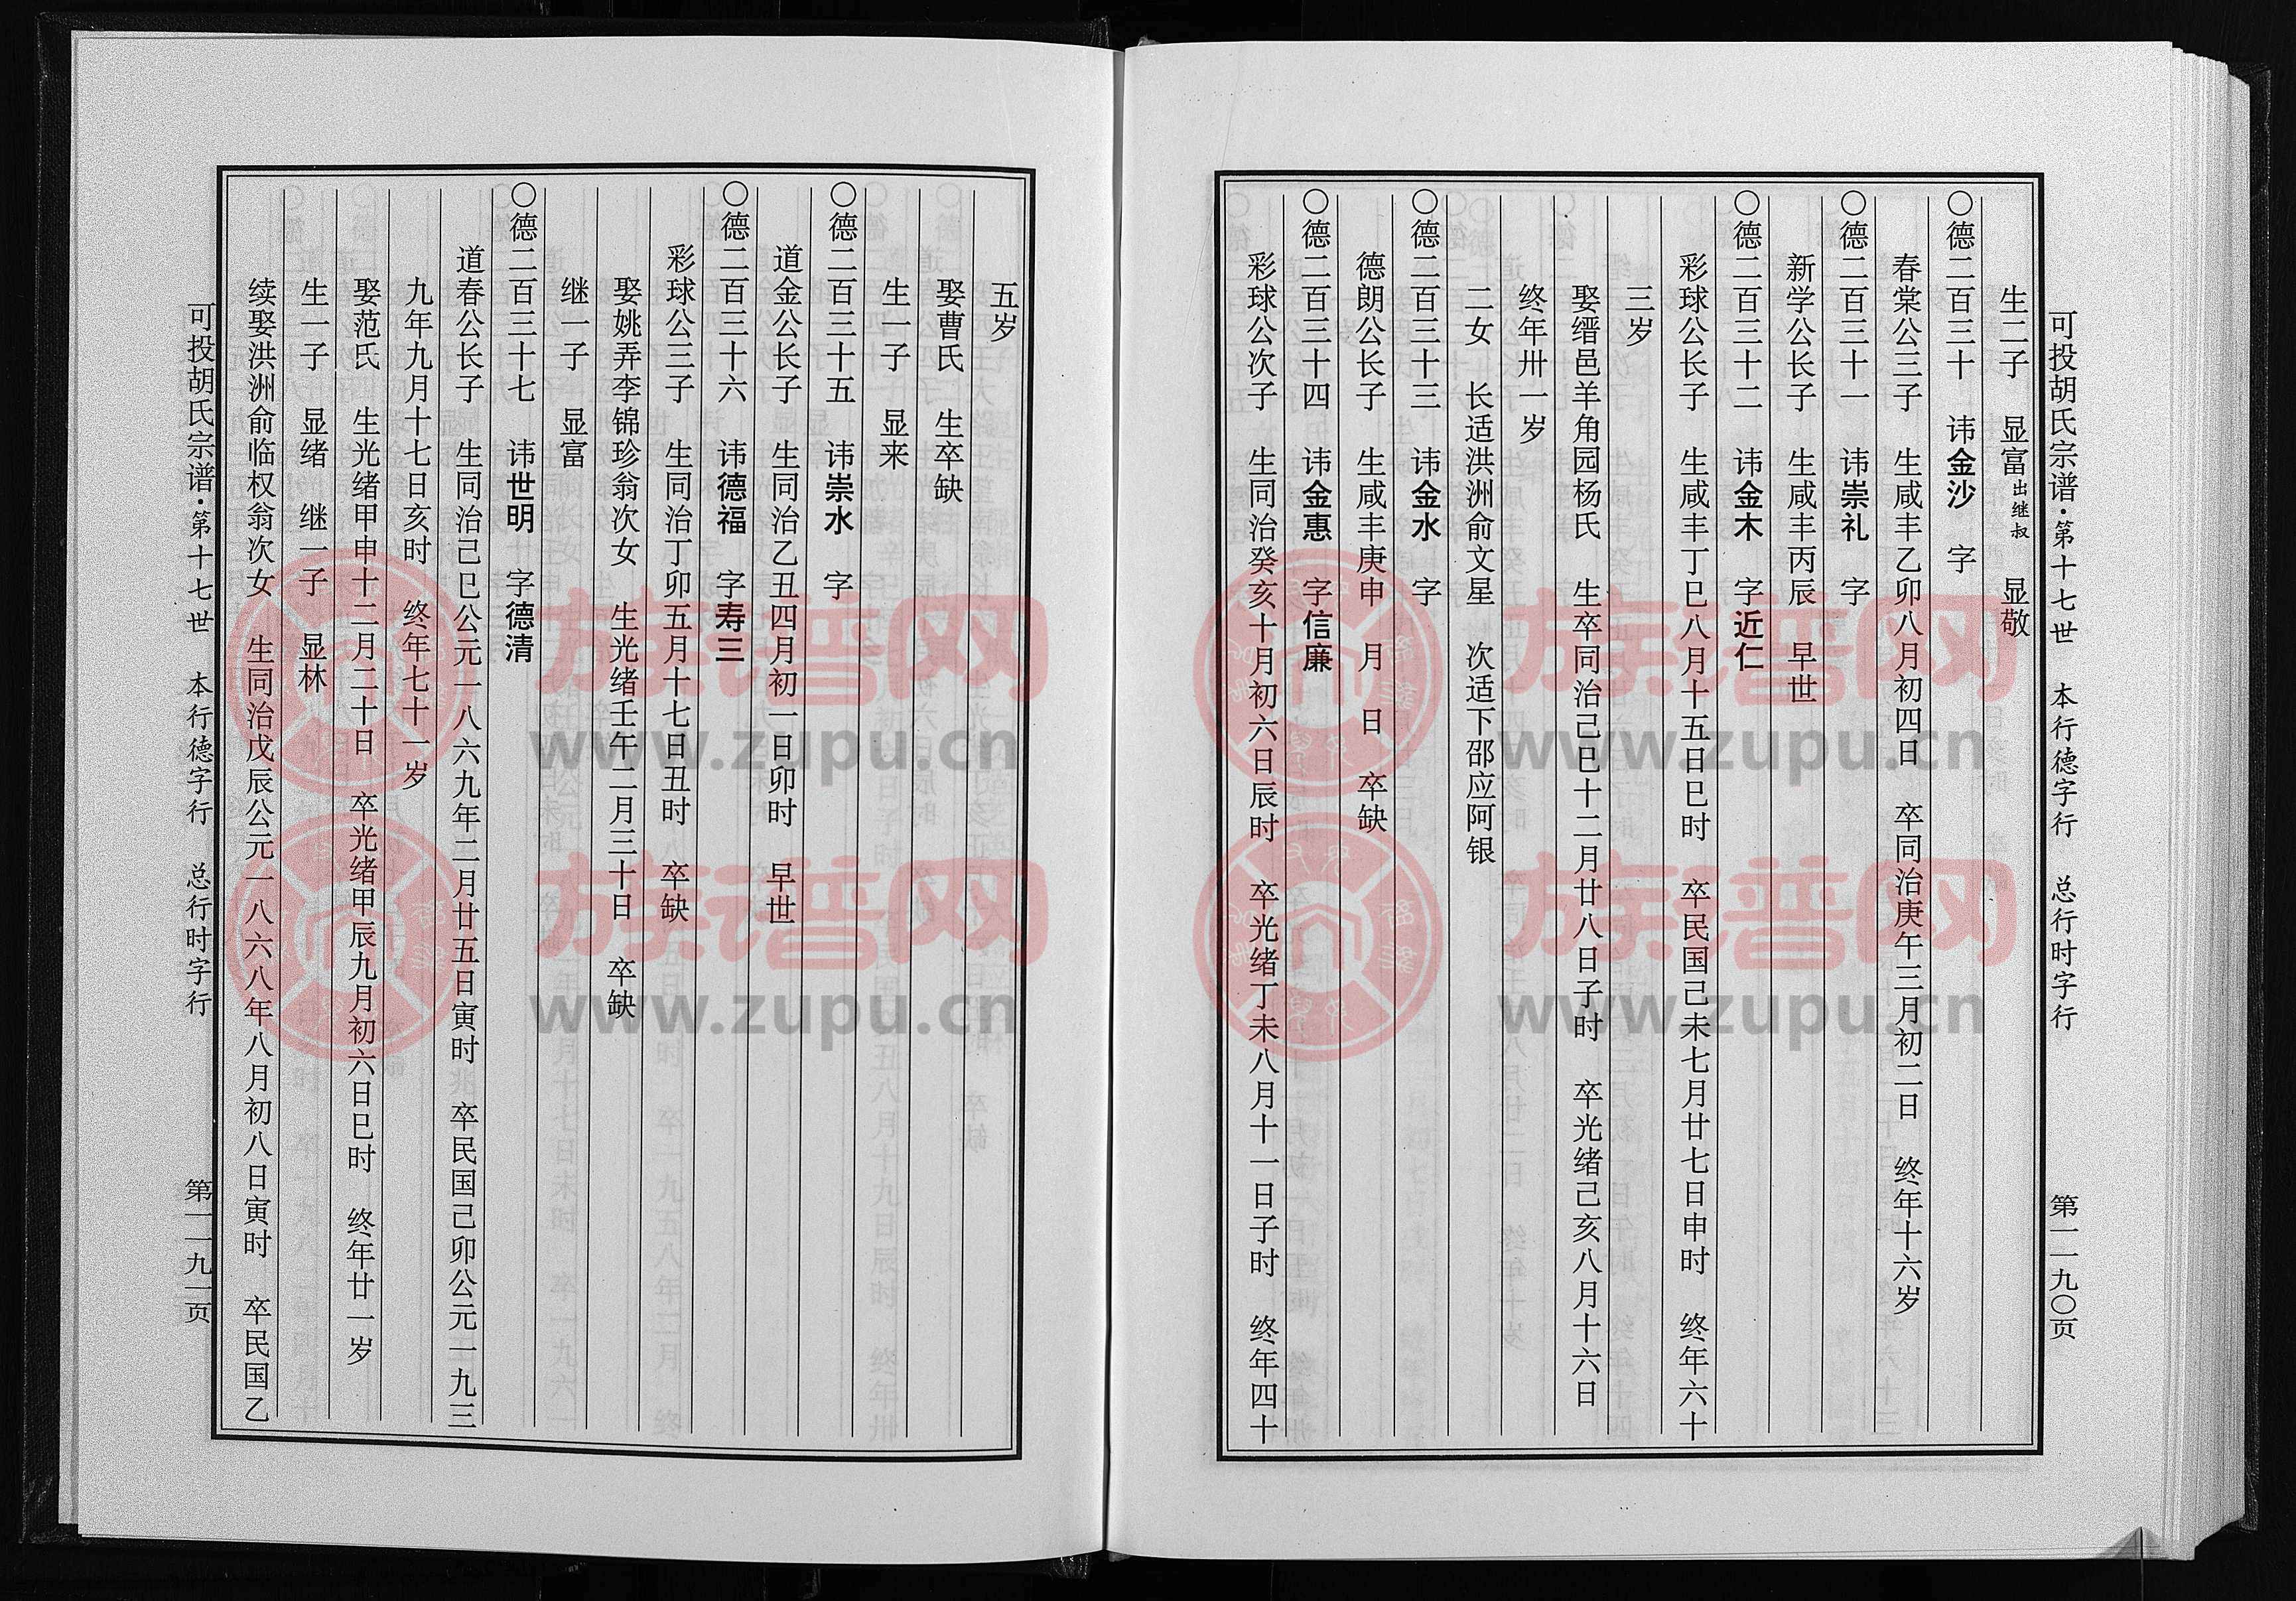 可投胡氏宗谱·第十七世　本行德字行　总行时字行　第一一九〇页
生二子　显富出继叔　显敬
〇德二百三十　讳金沙　字
春棠公三子　生咸丰乙卯八月初四日　卒同治庚午三月初二日　终年十六岁
〇德二百三十一　讳崇礼　字
新学公长子　生咸丰丙辰　早世
〇德二百三十二　讳金木　字近仁
彩球公长子　生咸丰丁巳八月十五日巳时　卒民国己未七月廿七日申时　终年六十
三岁
娶缙邑羊角园杨氏　生卒同治己巳十二月廿八日子时　卒光绪己亥八月十六日
终年卅一岁
二女　长适洪洲俞文星　次适下邵应阿银
〇德二百三十三　讳金水　字
德朗公长子　生咸丰庚申　月　日　卒缺
〇德二百三十四　讳金惠　字信廉
彩球公次子　生同治癸亥十月初六日辰时　卒光绪丁未八月十一日子时　终年四十
五岁
娶曹氏　生卒缺
生一子　显来
〇德二百三十五　讳崇水　字
道金公长子　生同治乙丑四月初一日卯时　早世
〇德二百三十六　讳德福　字寿三
彩球公三子　生同治丁卯五月十七日丑时　卒缺
娶姚弄李锦珍翁次女　生光绪壬午二月三十日　卒缺
继一子　显富
〇德二百三十七　讳世明　字德清
道春公长子　生同治己巳公元一八六九年二月廿五日寅时　卒民国己卯公元一九三
九年九月十七日亥时　终年七十一岁
娶范氏　生光绪甲申十二月二十日　卒光绪甲辰九月初六日巳时　终年廿一岁
生一子　显绪　继一子　显林
续娶洪洲俞临权翁次女　生同治戊辰公元一八六八年八月初八日寅时　卒民国乙
可投胡氏宗谱·第十七世　本行德字行　总行时字行　第一一九一页
族谱网
www.zupu.cn
族谱网
www.zupu.cn
族谱网
www.zupu.cn
族谱网
www.zupu.cn